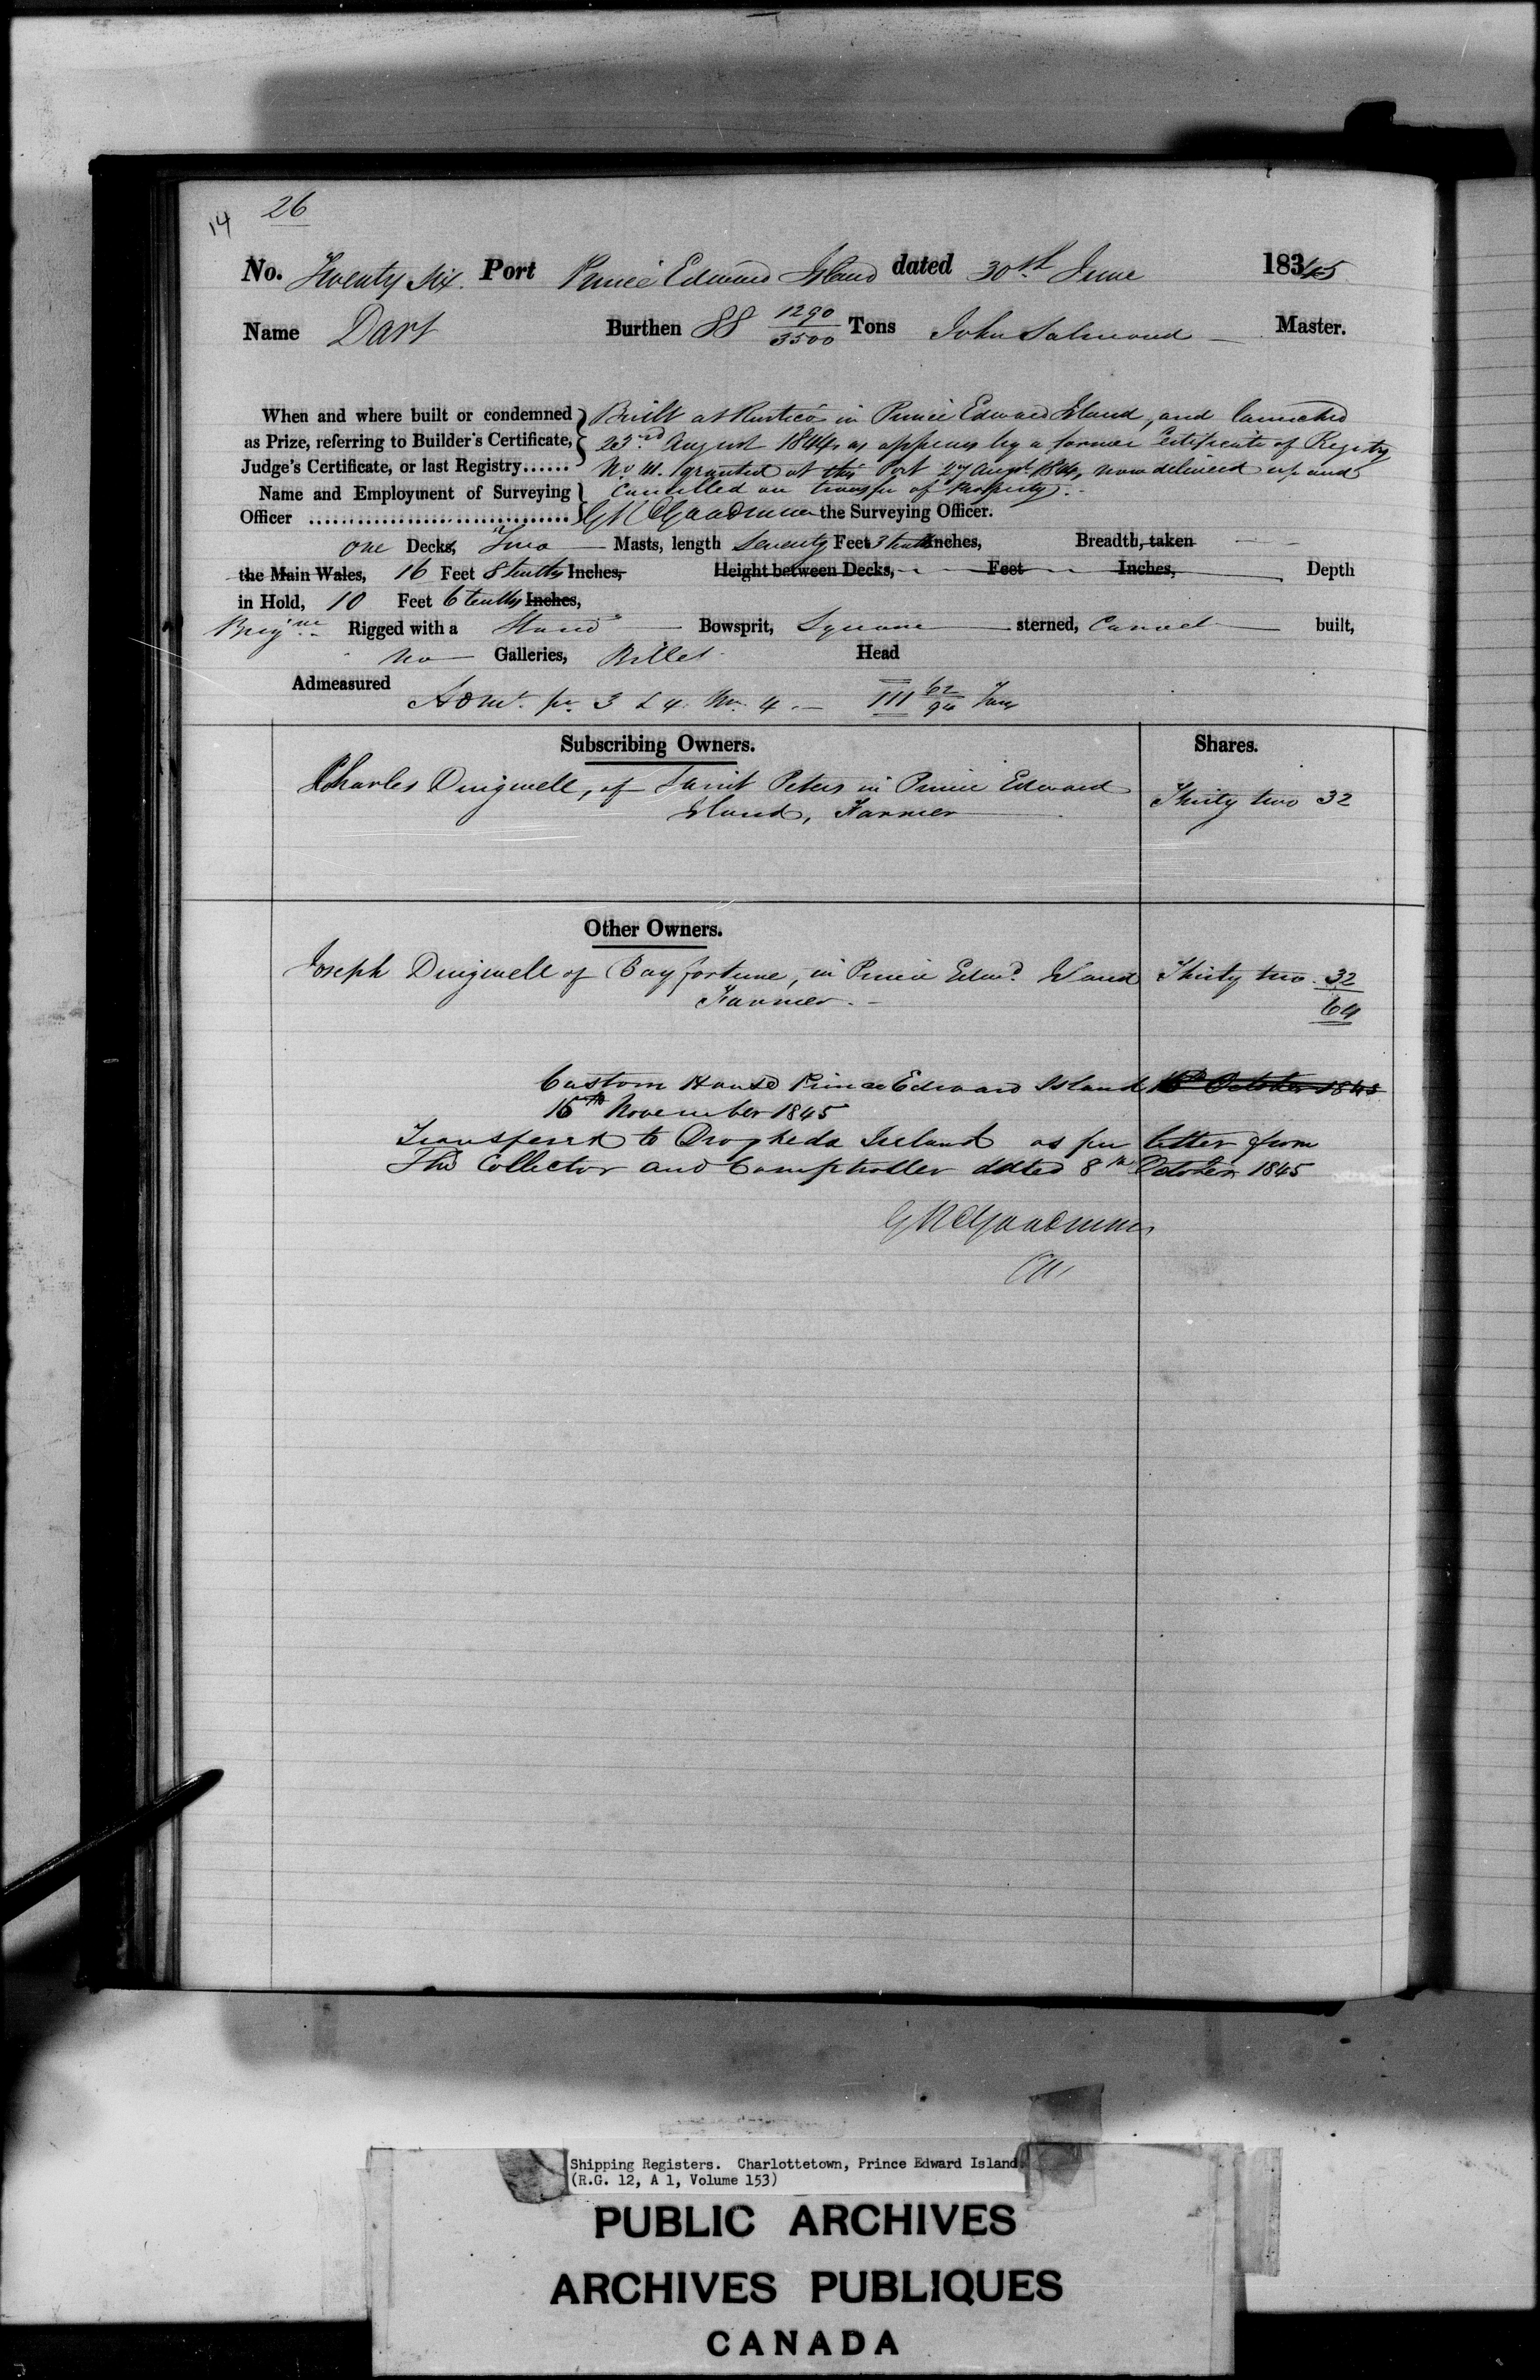 14 26
No. Twenty Six. Port Prince Edward Island dated 30th June 18345
Name Dart Burthen 88 1290/3500 Tons John Salmond Master.
When and where built or condemned Built at Rustico in Prince Edward Island, and launched
as Prize, referring to Builder's Certificate, 22nd August 1844 as appears by a former Certificate of Registry
Judge's Certificate, or last Registry...... No granted at this Port 27 Augt 1844, now delivered up and
Name and Employment of Surveying Cancelled on transfer of Property.
Officer ................................. GR Goodman the Surveying Officer.
one Decks, Two Masts, length Seventy Feet 3 tenths Inches, Breadth, taken
the Main Wales, 16 Feet 8 tenths Inches, Height between Decks, Feet Inches, Depth
in Hold, 10 Feet 6 tenths Inches,
Brigne Rigged with a Stand Bowsprit, Square sterned, Carvel built,
No Galleries, Billet Head
Admeasured 3 & 4 4. 111 62/94 Tons
Subscribing Owners. Shares.
Charles Dingwell, of Saint Peters in Prince Edward
Island, Farmer Thirty two 32
Other Owners.
Joseph Dingwell of Bay fortune, in Prince Edwd. Island Thirty two 32
Farmer. 64
Custom House Prince Edward Island October 1845
15th November 1845
Transferred to Drogheda Ireland as per letter from
The Collector and Comptroller dated 8th October 1845
GR Goodman
Shipping Registers. Charlottetown, Prince Edward Island.
(R.G. 12, A 1, Volume 153)
PUBLIC ARCHIVES
ARCHIVES PUBLIQUES
CANADA